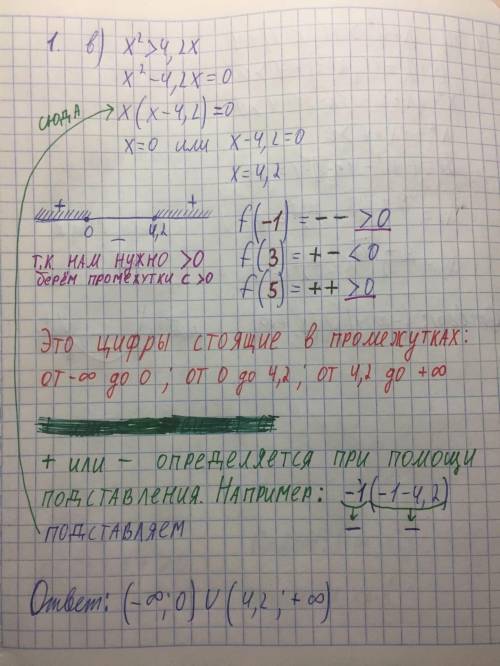 1. в) x²>4,2x
x²-4,2x=0
сюда x(x-4,2)=0
x=0 или x-4,2=0
x=4,2
+ +
0 - 4,2
f(-1)=-- >0
f(3)=+- <0
f(5)=++ >0
Т.К НАМ НУЖНО >0
берём промежутки с >0
Это цифры стоящие в промежутках:
от -∞ до 0; от 0 до 4,2; от 4,2 до +∞
+ или - определяется при помощи
подставления. Например: -1(-1-4,2)
подставляем - -
Ответ: (-∞;0)∪(4,2;+∞)